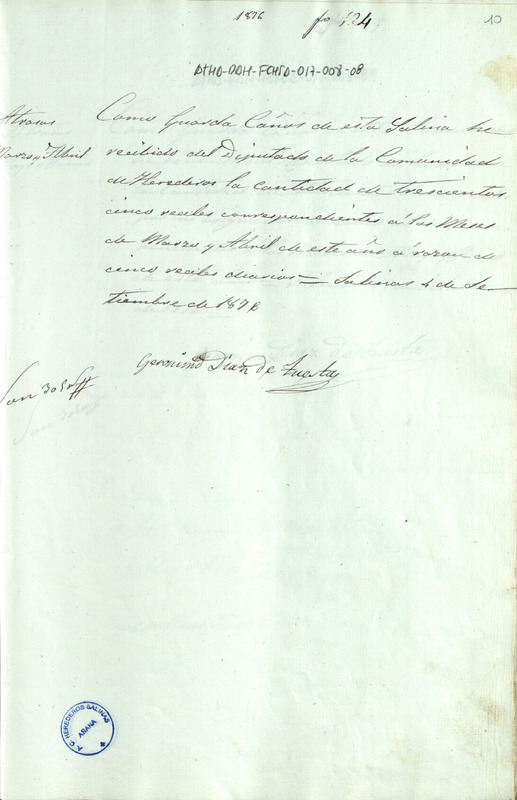 1876 fo 124 10
ATHD-DDH-FCHSD-017-008-08
Atrasos
Marzo y Abril
Como Guarda Caños de esta Salina he
recibido del Diputado de la Comunidad
de Herederos la cantidad de trescientos
cinco reales correspondientes á los Meses
de Marzo y Abril de este año á razon de
cinco reales diarios = Salinas 4 de Se-
tiembre de 1876
Geronimo Diaz de Tuesta
Son 305
A. C. HEREDEROS SALINAS
AÑANA